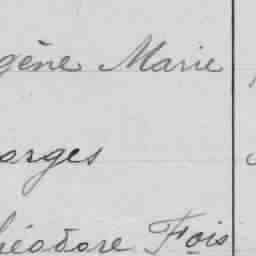 gène Marie
orges
héodore Fois